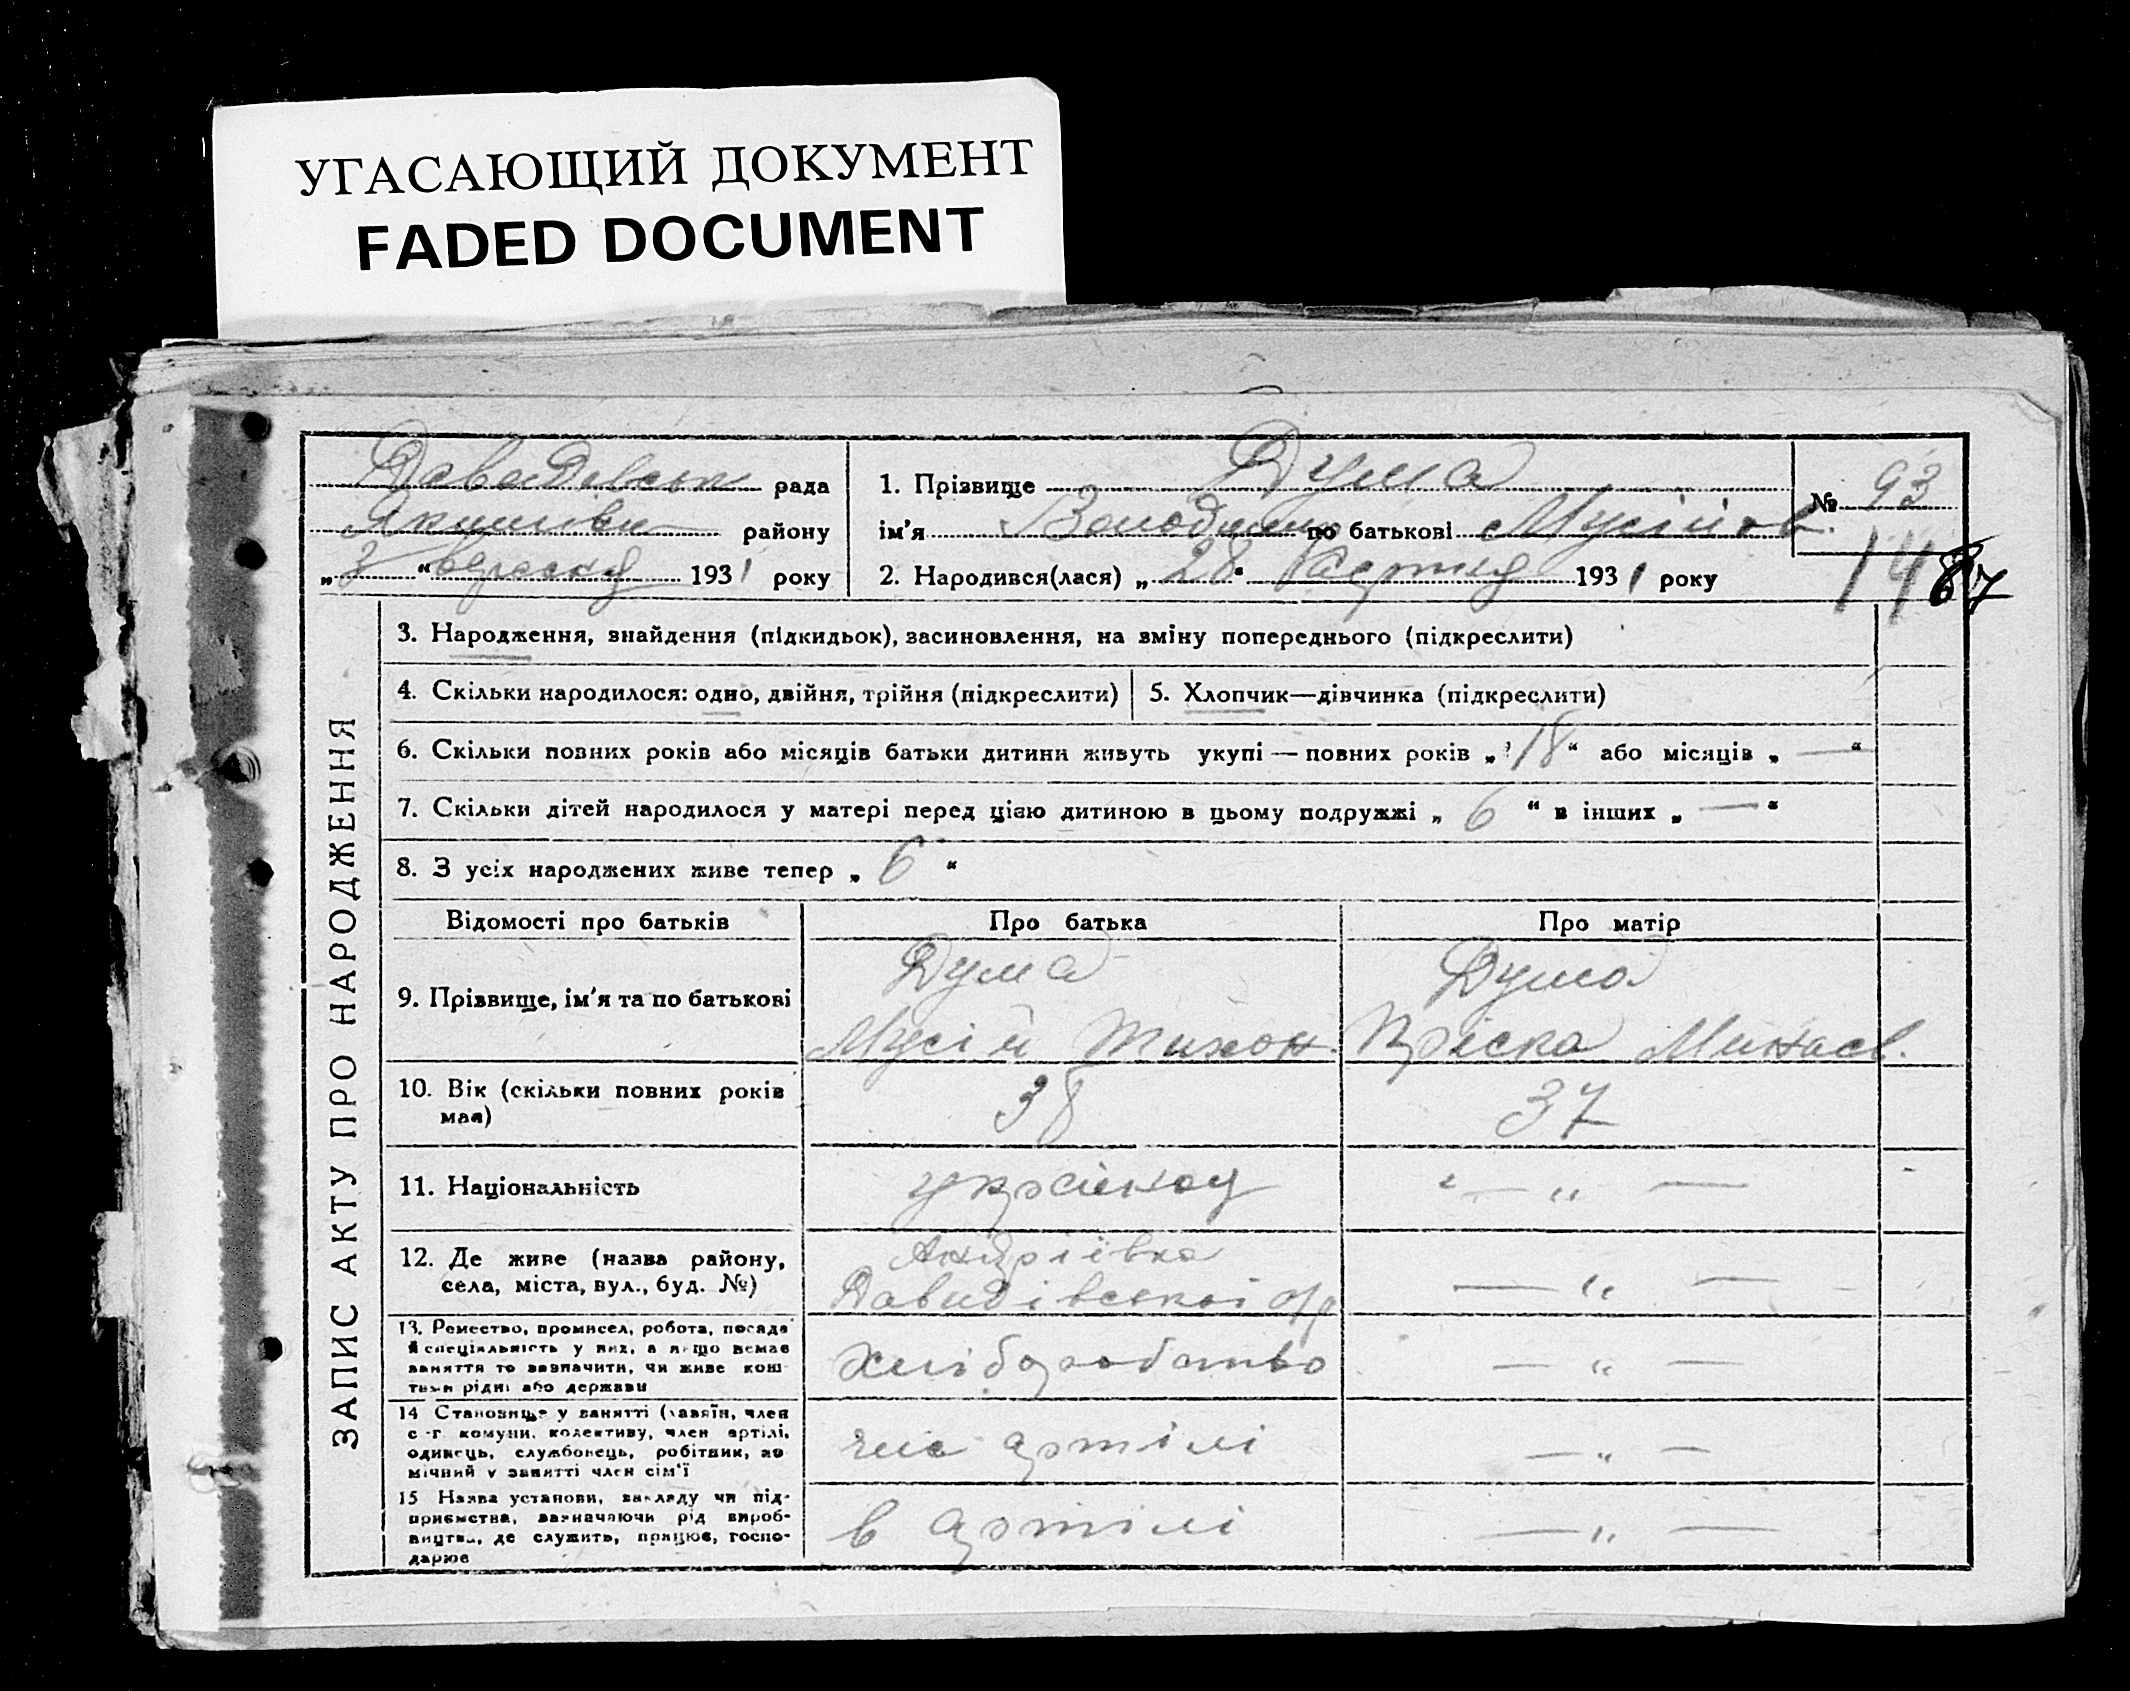 УГАСАЮЩИЙ ДОКУМЕНТ
FADED DOCUMENT
рада
району
„ 3 “ вересня 1931 року
1. Прізвище Дума
ім'я Володимир по батькові Мусійов.
2. Народився(лася) „ 28 “ Серпня 1931 року
№ 93
14
87
ЗАПИС АКТУ ПРО НАРОДЖЕННЯ
3. Народження, знайдення (підкидьок), засиновлення, на зміну попереднього (підкреслити)
4. Скільки народилося: одно, двійня, трійня (підкреслити)
5. Хлопчик—дівчинка (підкреслити)
6. Скільки повних років або місяців батьки дитини живуть укупі — повних років „ 18 “ або місяців „ — “
7. Скільки дітей народилося у матері перед цією дитиною в цьому подружжі „ 6 “ в інших „ — “
8. З усіх народжених живе тепер „ 6 “
Відомості про батьків
Про батька
Про матір
9. Прізвище, ім'я та по батькові
Дума
Мусій Тихон.
Дума
Пріська Минаєв.
10. Вік (скільки повних років
має)
38
37
11. Національність
— „ —
12. Де живе (назва району,
села, міста, вул., буд. №)
Андріївка
Давидівської с/р
— „ —
13. Ремество, промисел, робота, посада
й спеціяльність у них, а якщо немає
заняття то зазначити, чи живе кош-
тами рідні або держави
Хліборобство
— „ —
14 Становище у занятті (хазяїн, член
с-г. комуни, колективу, член артілі,
одинець, службовець, робітник, по
мічний у занятті член сім'ї
член артілі
— „ —
15 Назва установи, закладу чи під-
приємства, зазначаючи рід вироб-
ництва, де служить, працює, госпо-
дарює
в артілі
— „ —